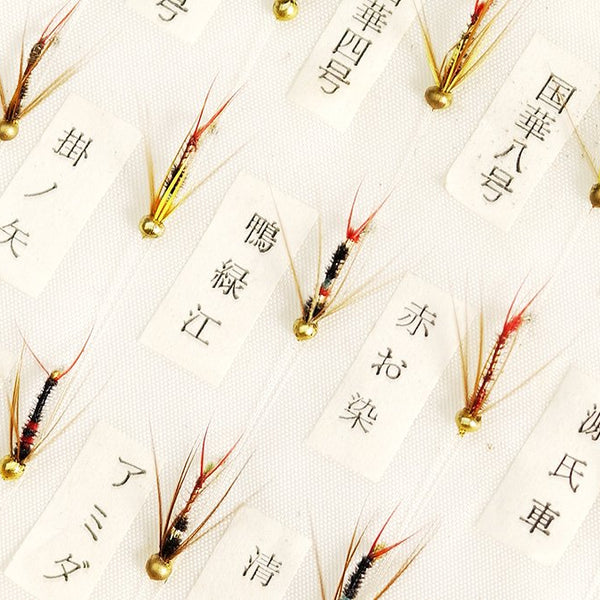 号
国華四号
国華八号
掛ノ矢
鴨緑江
赤お染
源氏車
アミダ
清